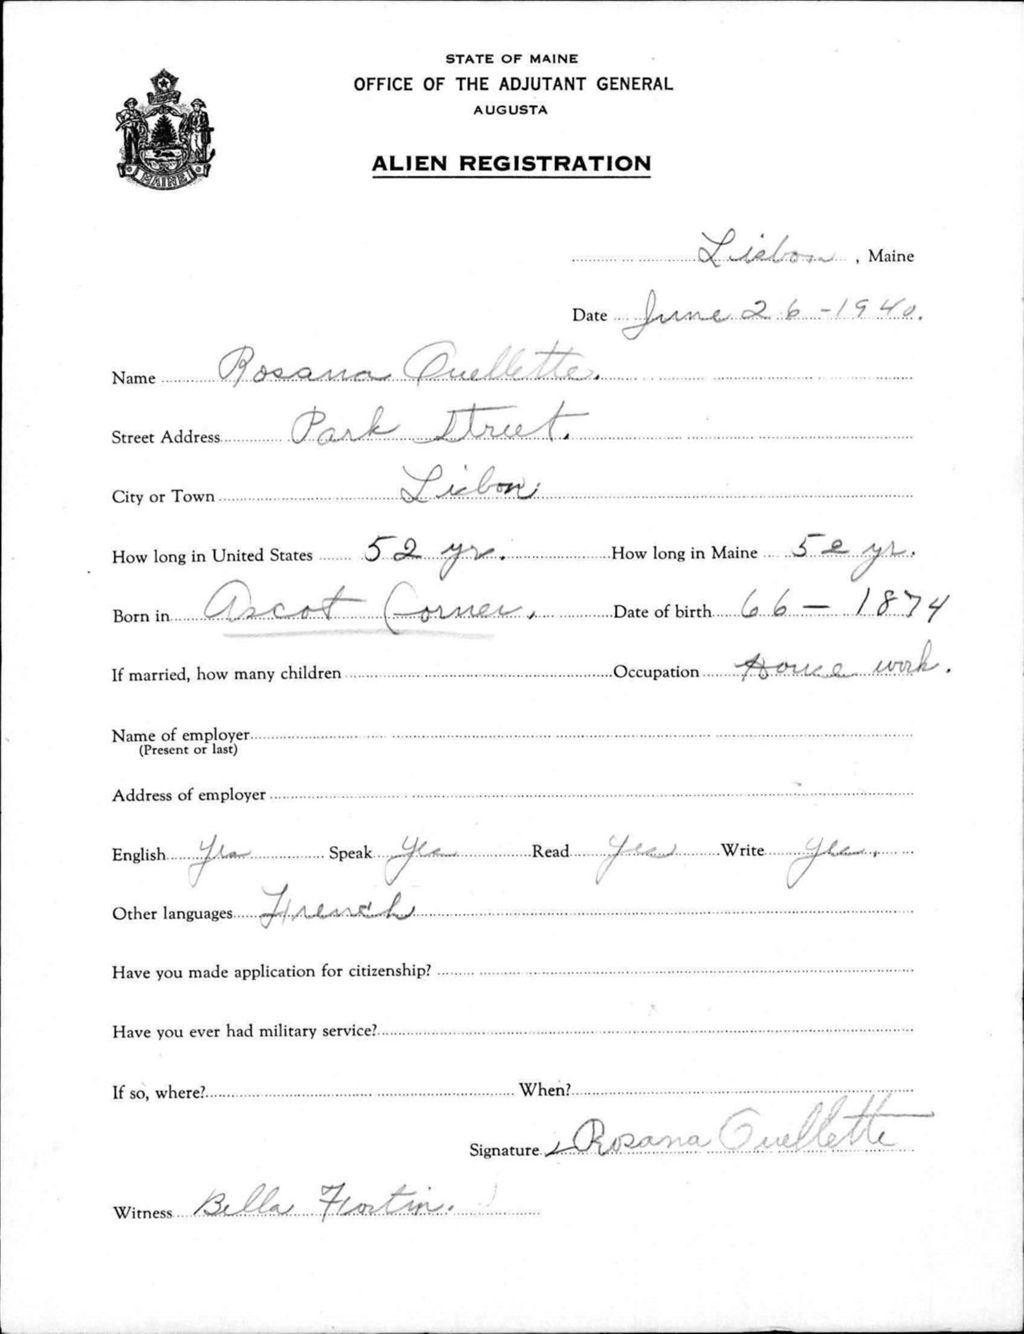 STATE OF MAINE
OFFICE OF THE ADJUTANT GENERAL
AUGUSTA
ALIEN REGISTRATION
MAINE
Lisbon, Maine
Date June 26-1940.
Name Rosana Ouellette.
Street Address Park Street.
City or Town Lisbon
How long in United States 52 yr. How long in Maine 52 yr.
Born in Ascot Corner. Date of birth 66 – 1874
If married, how many children Occupation House work.
Name of employer
(Present or last)
Address of employer
English Yes Speak Yes Read Yes Write Yes.
Other languages French
Have you made application for citizenship?
Have you ever had military service?
If so, where? When?
Signature Rosana Ouellette
Witness Bella Fortin.